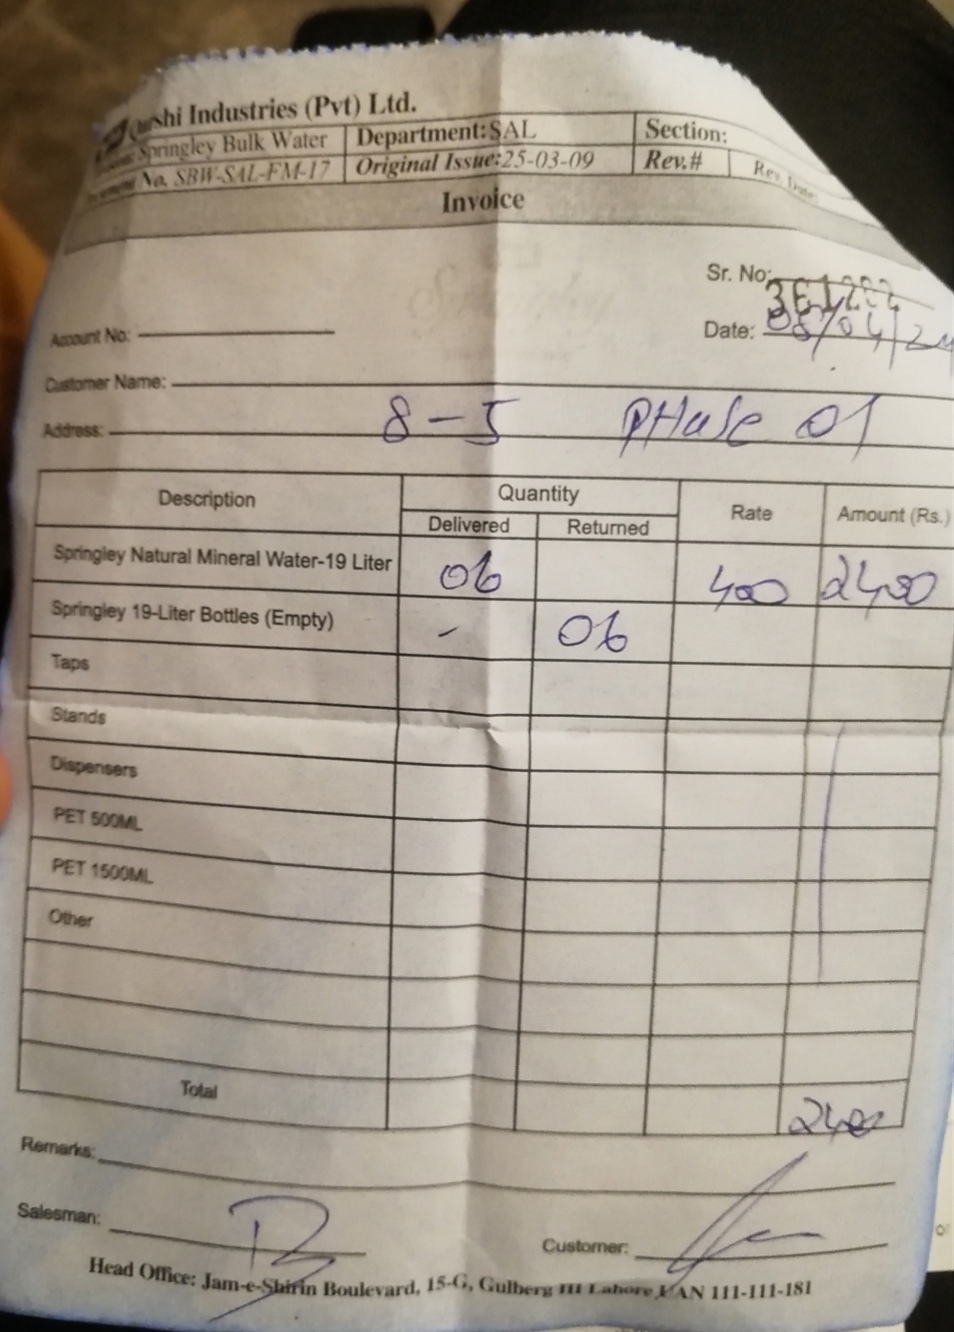 shi Industries (Pvt) Ltd.
Springley Bulk Water Department: SAL Section:
No. SBW-SAL-FM-17 Original Issue: 25-03-09 Rev.# Rev. Date:
Invoice
Sr. No:
Account No: Date: 08/04/24
Customer Name:
Address: 8-5 PHase 01
Description Quantity Rate Amount (Rs.)
Delivered Returned
Springley Natural Mineral Water-19 Liter 06 400 2400
Springley 19-Liter Bottles (Empty) - 06
Taps
Stands
Dispensers
PET 500ML
PET 1500ML
Other
Total 2400
Remarks:
Salesman:
Customer:
Head Office: Jam-e-Shirin Boulevard, 15-G, Gulberg III Lahore UAN 111-111-181